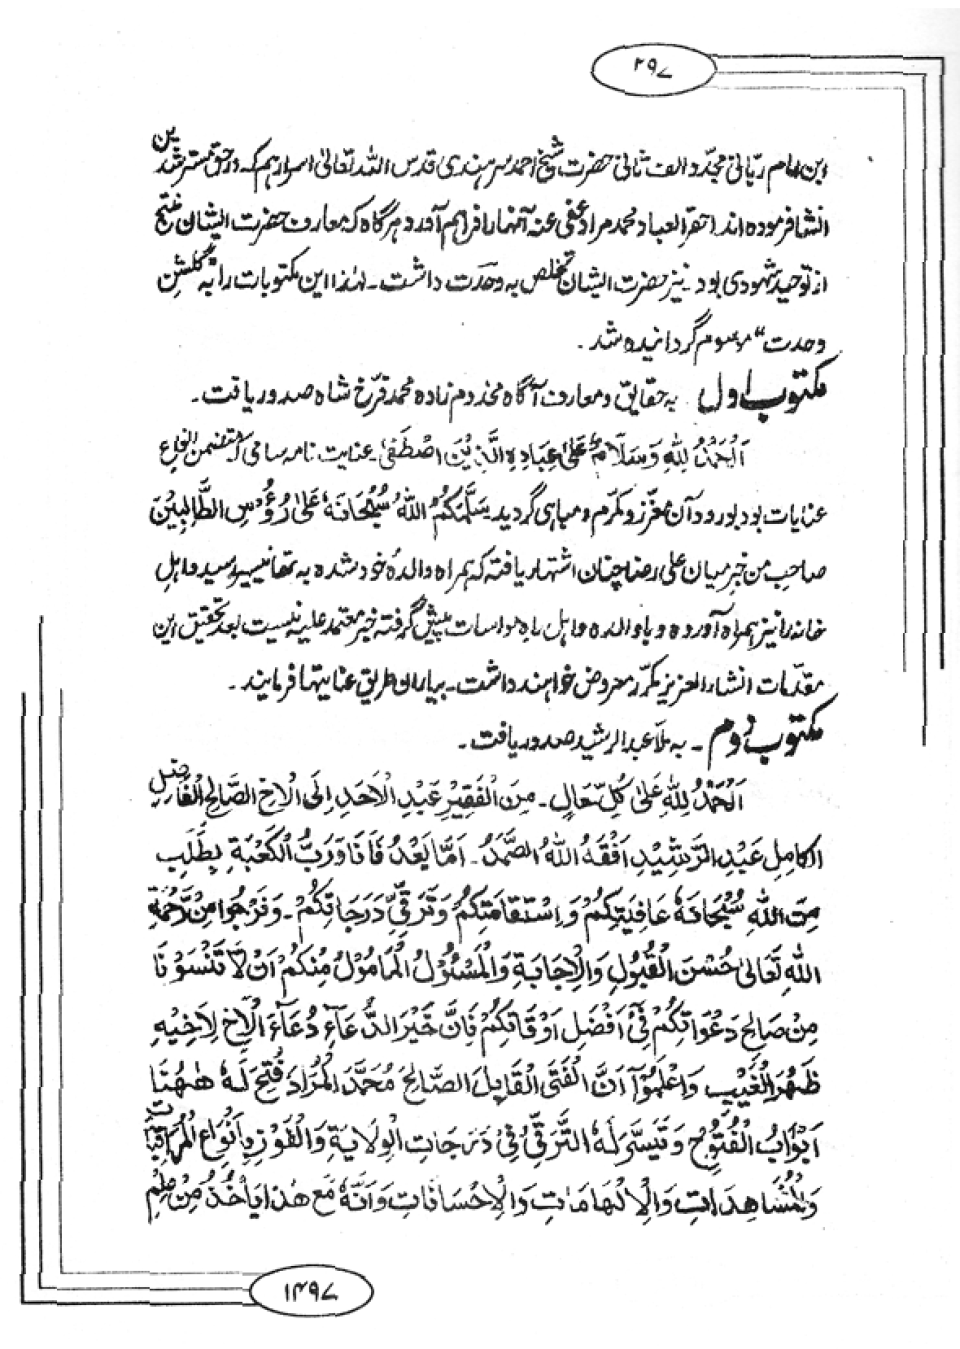 ۲۹۷
ابن امام ربانی مجدد الف ثانی حضرت شیخ احمد سرہندی قدس اللہ تعالیٰ اسرارہم کہ در حق مسترشدین
انشا فرمودہ اند احقر العباد محمد مراد عفی عنہ آنہا را فراہم آورد و ہرگاہ کہ معارف حضرت ایشان منتج
از توحید شہودی بود۔ نیز حضرت ایشان تخلص بہ وحدت داشت۔ لہٰذا این مکتوبات را بہ "گلشن
وحدت" موسوم گردانیدہ شد۔
مکتوب اول بہ حقایق و معارف آگاہ مخدوم زادہ محمد فرّخ شاہ صدور یافت۔
اَلْحَمْدُ لِلّٰهِ وَسَلَامٌ عَلٰی عِبَادِهِ الَّذِیْنَ اصْطَفٰی۔ عنایت نامہ سامی کہ متضمن انواع
عنایات بود بورود آن معزز و مکرّم و مباہی گردید سَلَّمَكُمُ اللهُ سُبْحَانَهٗ عَلٰی رُؤُسِ الطَّالِبِیْنَ
صاحب من خبر میان علی رضا چنان اشتہار یافتہ کہ ہمراہ والدہ خود شدہ بہ تھانیسر رسید و اہل
خانہ را نیز ہمراہ آوردہ و با والدہ و اہل راہ مواسات پیش گرفتہ خبر معتمد علیہ نیست بعد تحقیق این
مقدمات انشاء العزیز مکرّر معروض خواہند داشت۔ بیاران طریق عنایتہا فرمایند۔
مکتوب دوم ۔ بہ ملا عبد الرشید صدور یافت۔
اَلْحَمْدُ لِلّٰهِ عَلٰی كُلِّ حَالٍ۔ مِنَ الْفَقِیْرِ عَبْدِ الْاَحَدِ اِلَی الْاَخِ الصَّالِحِ الْفَاضِلِ
الْكَامِلِ عَبْدِ الرَّشِیْدِ اَفْقَهُ اللهُ الصَّمَدُ۔ اَمَّا بَعْدُ فَاَنَا وَرَبِّ الْكَعْبَةِ بِطَلَبِ
مِنَ اللهِ سُبْحَانَهٗ عَافِیَتِكُمْ وَاِسْتِقَامَتِكُمْ وَتَرَقِّیْ دَرَجَاتِكُمْ۔ وَنَرْجُوا مِنْ رَّحْمَةِ
اللهِ تَعَالٰی حُسْنَ الْقَبُوْلِ وَالْاِجَابَةِ وَالْمَسْئُوْلُ الْمَامُوْلُ مِنْكُمْ اَنْ لَّا تَنْسَوْنَا
مِنْ صَالِحِ دَعْوَاتِكُمْ فِیْ اَفْضَلِ اَوْقَاتِكُمْ فَاِنَّ خَیْرَ الدُّعَآءِ دُعَآءُ الْاَخِ لِاَخِیْهِ
ظَهْرَ الْغَیْبِ وَاعْلَمُوْا اَنَّ الْفَتَی الْقَابِلَ الصَّالِحَ مُحَمَّدَ الْمُرَادَ فُتِحَ لَهٗ هٰهُنَا
اَبْوَابُ الْفُتُوْحِ وَتَیَسَّرَ لَهُ التَّرَقِّیْ فِیْ دَرَجَاتِ الْوِلَایَةِ وَالْفَوْزِ بِاَنْوَاعِ الْمُرَاقَبَاتِ
وَالْمُشَاهِدَاتِ وَالْاِلْهَامَاتِ وَالْاِحْسَانَاتِ وَاَنَّهٗ مَعَ هٰذَا یَاْخُذُ مِنْ عِلْمِ
۱۴۹۷